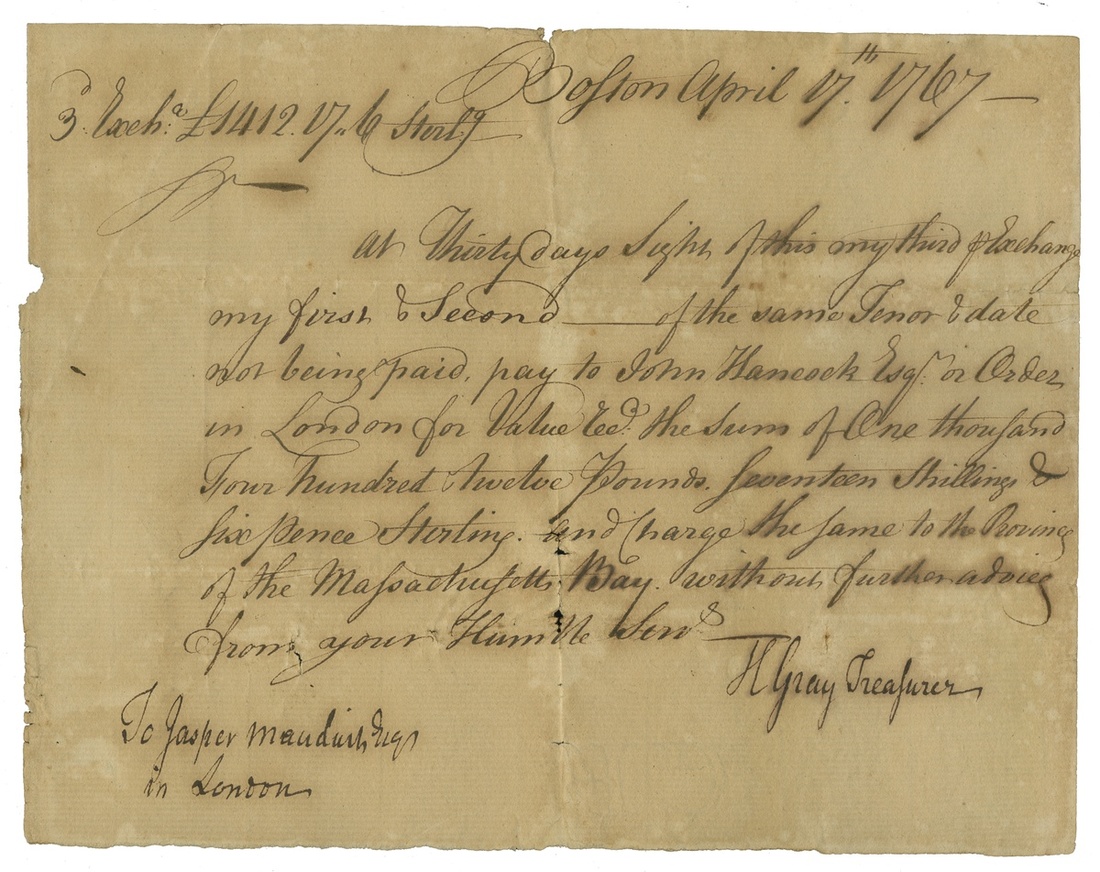 Boston April 17.th 1767
3.d Exch.a £1412. 17.. 6 Sterl.g
At Thirty days Sight of this my third of Exchange
my first & Second of the same Tenor & date
not being paid, pay to John Hancock Esq.r or Order
in London for Value Rec.d the sum of One thousand
Four hundred & twelve Pounds. Seventeen Shillings &
Six pence Sterling. and Charge the same to the Province
of the Massachusetts Bay. without further advice
from your Humble Serv.t
H Gray Treasurer
To Jasper Mauduit Esq
in London